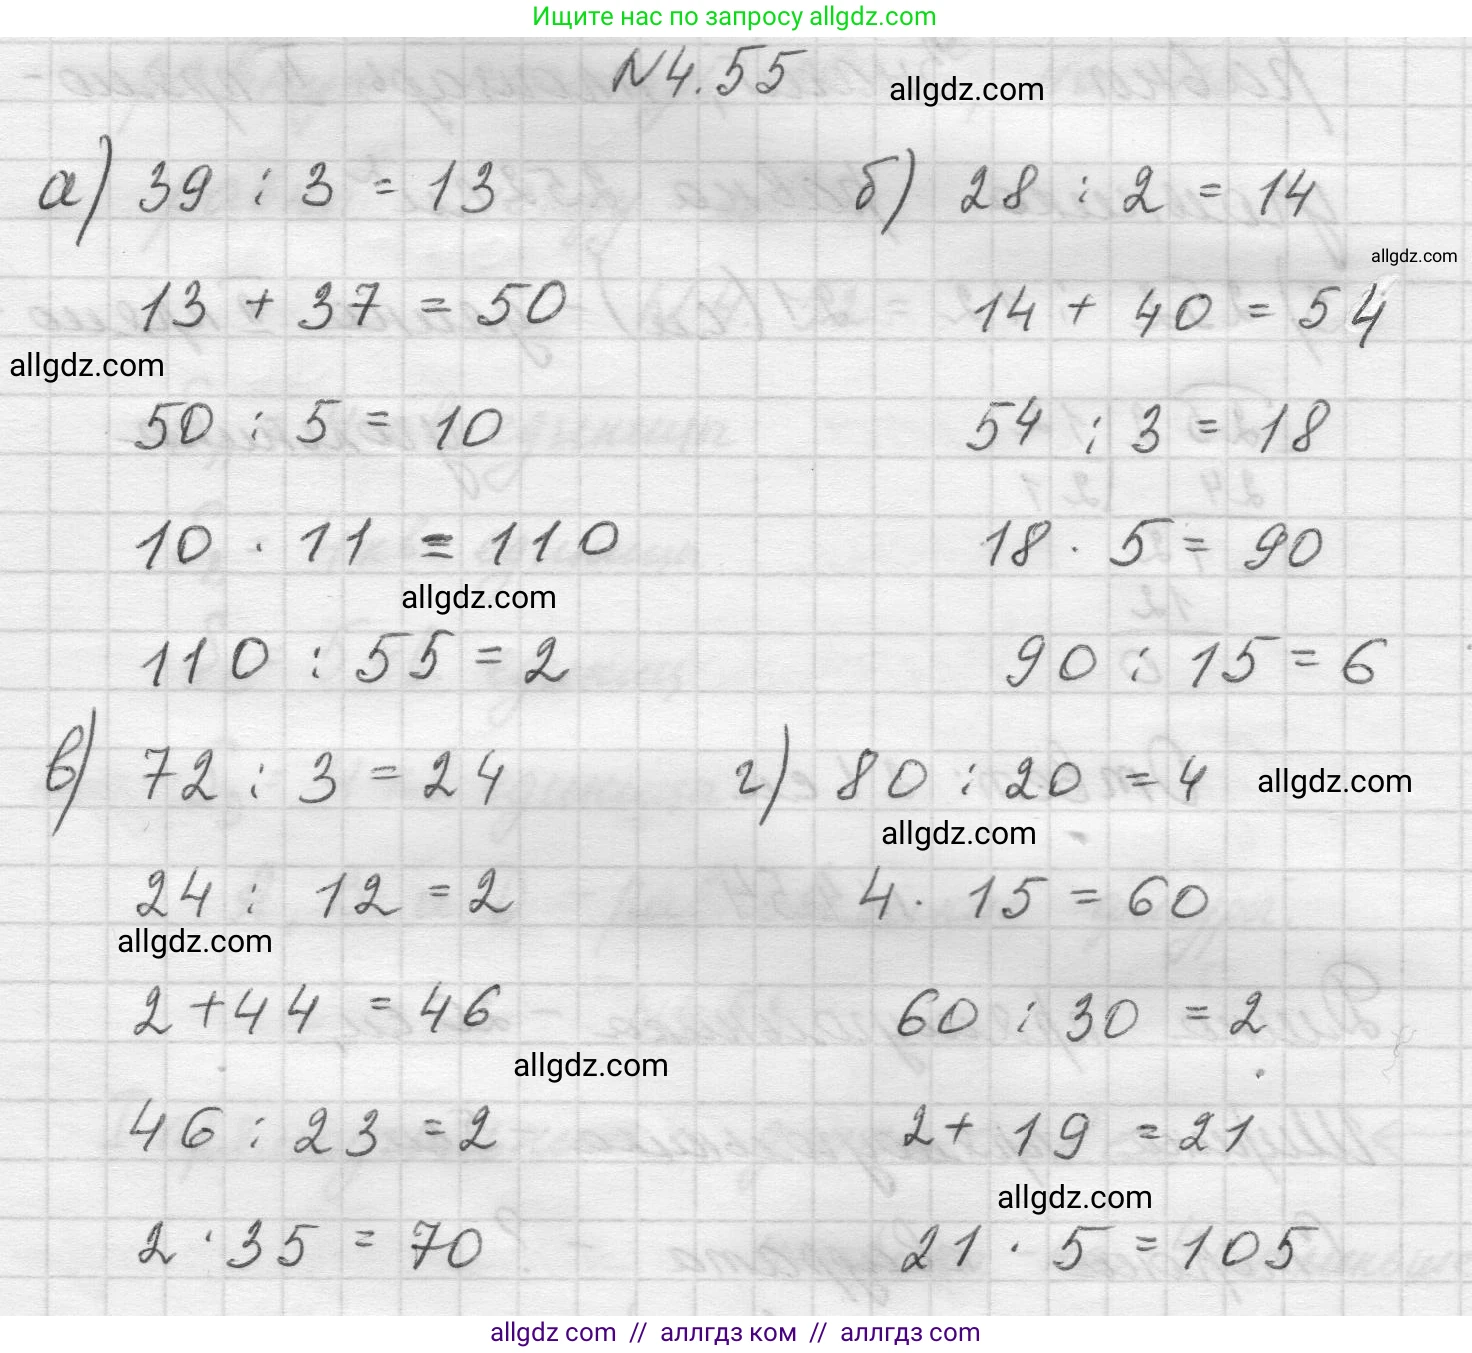 Ищите нас по запросу allgdz.com
N4.55
allgdz.com
а) 39 : 3 = 13
б) 28 : 2 = 14
allgdz.com
13 + 37 = 50
14 + 40 = 54
allgdz.com
50 : 5 = 10
54 : 3 = 18
10 · 11 = 110
18 · 5 = 90
allgdz.com
110 : 55 = 2
90 : 15 = 6
в) 72 : 3 = 24
г) 80 : 20 = 4
allgdz.com
allgdz.com
24 : 12 = 2
4 · 15 = 60
allgdz.com
2 + 44 = 46
60 : 30 = 2
allgdz.com
46 : 23 = 2
2 + 19 = 21
allgdz.com
2 · 35 = 70
21 · 5 = 105
allgdz com // аллгдз ком // allgdz com